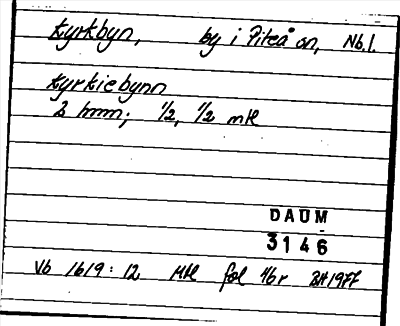 Kyrkbyn, by i Piteå sn, Nb.l.
kyrkiebynn
2 hmn; 1/2, 1/2 mtl
DAUM
3146
Vb 1619: 12 Mtl fol 46r BH 1977